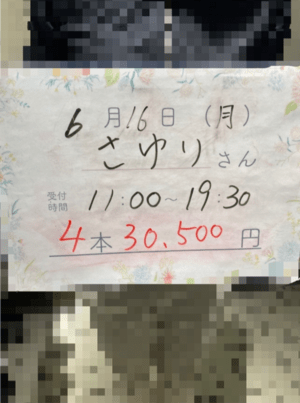 6月16日(月)
さゆりさん
受付時間 11:00~19:30
4本 30.500円